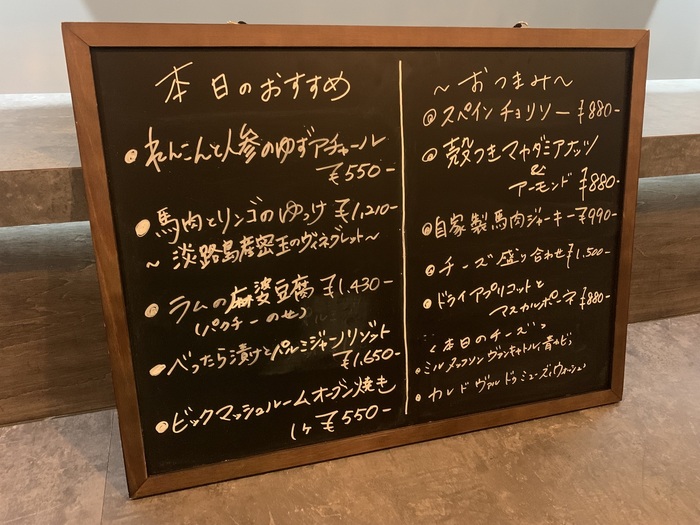 本日のおすすめ
れんこんと人参のゆずアチャール
¥550-
馬肉とリンゴのゆっけ ¥1,210-
〜淡路島産蜜玉のヴィネグレット〜
ラムの麻婆豆腐 ¥1,430-
(パクチーのせ)
べったら漬けとパルミジャーノリゾット
¥1,650-
ビックマッシュルームオーブン焼き
1ヶ ¥550-
〜おつまみ〜
スペインチョリソー ¥880-
殻つきマカダミアナッツ
&
アーモンド ¥880-
自家製馬肉ジャーキー ¥990-
チーズ盛り合わせ ¥1,500-
ドライアプリコットと
マスカルポーネ ¥880-
<本日のチーズ>
ミル
カルドヴァルドゥミューズ(ウォッシュ)